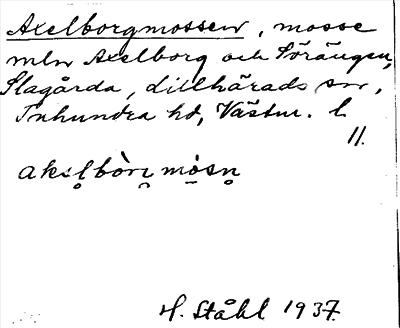 Axelborgmossen, mosse
mln Axelborg och Sörängen,
Slagårda, Lillhärads sn,
Tuhundra hd, Västm. l.
11.
aksl̥bòrι mȯsn̥
H. Ståhl 1937.